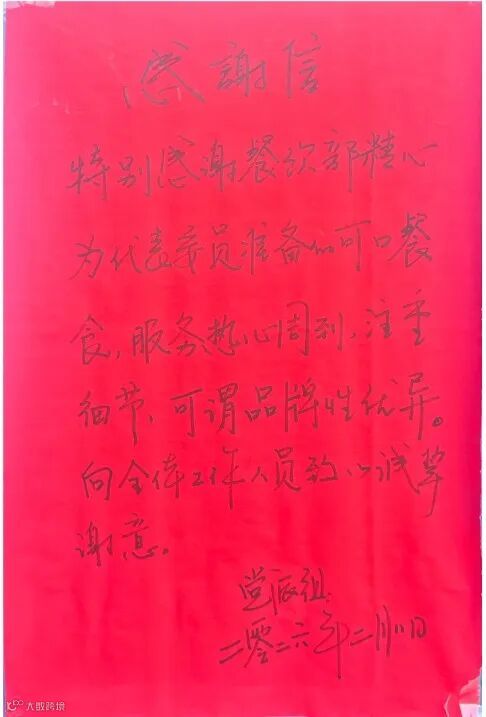 感謝信
特别感谢餐饮部精心
为代表委员准备的可口餐
食,服务热心周到,注重
细节,可谓品牌性优异。
向全体工作人员致以诚挚
谢意。
二零二六年二月
大数跨境